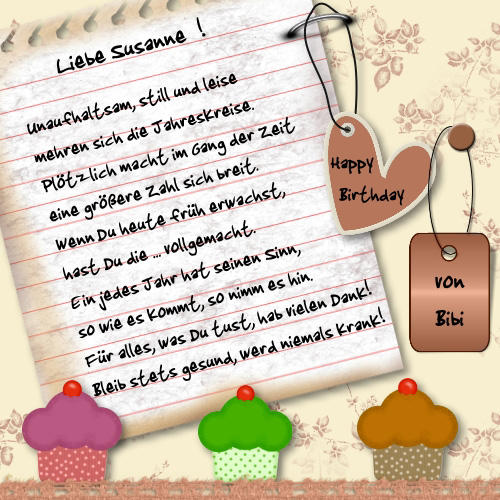 Liebe Susanne !
Unaufhaltsam, still und leise
mehren sich die Jahreskreise.
Plötzlich macht im Gang der Zeit
eine größere Zahl sich breit.
Wenn Du heute früh erwachst,
hast Du die ... vollgemacht.
Ein jedes Jahr hat seinen Sinn,
so wie es kommt, so nimm es hin.
Für alles, was Du tust, hab vielen Dank!
Bleib stets gesund, werd niemals krank!
Happy
Birthday
von
Bibi